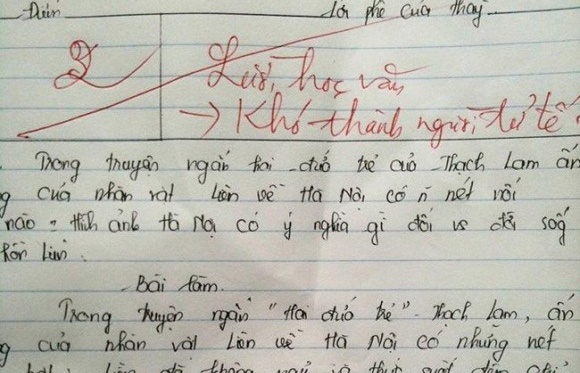 Điểm Lời phê của thầy
2 Lười học văn
→ Khó thành người tử tế
Trong truyện ngắn hai đứa trẻ của Thạch Lam ấn
của nhân vật Liên về Hà Nội có n nét nổi
nào? Hình ảnh Hà Nội có ý nghĩa gì đối vs đời sống
hồn Liên.
Bài làm.
Trong truyện ngắn "Hai đứa trẻ" Thạch Lam, ấn
của nhân vật Liên về Hà Nội có những nét